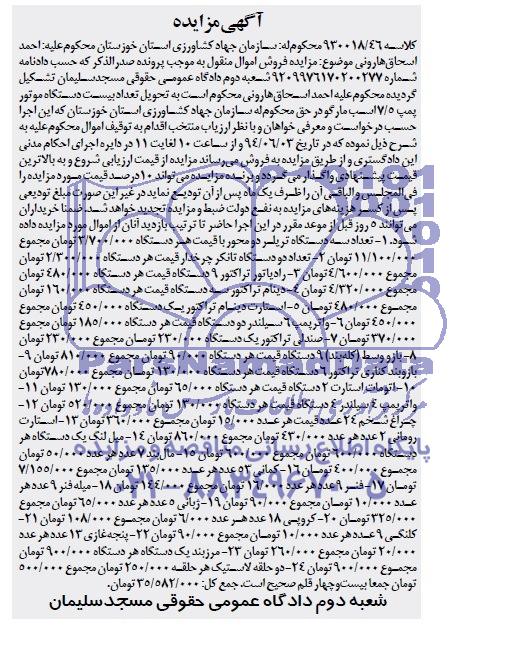 آگهی مزایده
کلاسه ۹۳۰۰۱۸/۴۶ محکوم‌له: سازمان جهاد کشاورزی استان خوزستان محکوم‌علیه: احمد
اسحاق‌هارونی موضوع: مزایده فروش اموال منقول به موجب پرونده صدرالذکر که حسب دادنامه
شماره ۹۲۰۹۹۷۶۱۷۰۲۰۰۲۷۷ شعبه دوم دادگاه عمومی حقوقی مسجدسلیمان تشکیل
گردیده محکوم‌علیه احمد اسحاق‌هارونی محکوم است به تحویل تعداد بیست دستگاه موتور
پمپ ۷/۵ اسب مارگو در حق محکوم‌له سازمان جهاد کشاورزی استان خوزستان که این اجرا
حسب درخواست و معرفی خواهان و با نظر ارزیاب منتخب اقدام به توقیف اموال محکوم‌علیه به
شرح ذیل نموده که در تاریخ ۹۴/۰۶/۰۳ و از ساعت ۱۰ لغایت ۱۱ در دایره اجرای احکام مدنی
این دادگستری و از طریق مزایده به فروش می‌رساند مزایده از قیمت ارزیابی شروع و به بالاترین
قیمت پیشنهادی واگذار می‌گردد و برنده مزایده می‌تواند ۱۰ درصد قیمت مورد مزایده را
فی‌المجلس و الباقی آن را ظرف یک ماه پس از آن تودیع نماید در غیر این صورت مبلغ تودیعی
پس از کسر هزینه‌های مزایده به نفع دولت ضبط و مزایده تجدید خواهد شد. ضمنا خریداران
می‌توانند ۵ روز قبل از موعد مقرر در این اجرا حاضر تا ترتیب بازدید آنان از اموال مورد مزایده داده
شود. ۱- تعداد سه دستگاه تریلر دو محور با قیمت هر دستگاه ۳/۷۰۰/۰۰۰ تومان مجموع
۱۱/۱۰۰/۰۰۰ تومان ۲- تعداد دو دستگاه تانکر چرخدار قیمت هر دستگاه ۲/۳۰۰/۰۰۰ تومان
مجموع ۴/۶۰۰/۰۰۰ تومان ۳- رادیاتور تراکتور ۹ دستگاه قیمت هر دستگاه ۴۸۰/۰۰۰ تومان
مجموع ۴/۳۲۰/۰۰۰ تومان ۴- دینام تراکتور سه دستگاه قیمت هر دستگاه ۱۶۰/۰۰۰ تومان
مجموع ۴۸۰/۰۰۰ تومان ۵- استارت دینام تراکتور یک دستگاه ۴۵۰/۰۰۰ تومان مجموع
۴۵۰/۰۰۰ تومان ۶- واترپمپ ۶ سیلندر دو دستگاه قیمت هر دستگاه ۱۸۵/۰۰۰ تومان مجموع
۳۷۰/۰۰۰ تومان ۷- صندلی تراکتور یک دستگاه ۲۳۰/۰۰۰ تومان مجموع ۲۳۰/۰۰۰ تومان
۸- بازو وسط (کله‌بند) ۹ دستگاه قیمت هر دستگاه ۹۰/۰۰۰ تومان مجموع ۸۱۰/۰۰۰ تومان ۹-
بازوبند کناری تراکتور ۶ دستگاه قیمت هر دستگاه ۱۳۰/۰۰۰ تومان مجموع ۷۸۰/۰۰۰ تومان
۱۰- اتومات استارت ۲ دستگاه قیمت هر دستگاه ۶۵/۰۰۰ تومان مجموع ۱۳۰/۰۰۰ تومان ۱۱-
واترپمپ ۴ سیلندر ۴ دستگاه قیمت هر دستگاه ۱۳۰/۰۰۰ تومان مجموع ۵۲۰/۰۰۰ تومان ۱۲-
چراغ شخم ۲۴ عدد قیمت هر عدد ۱۵/۰۰۰ تومان مجموع ۳۶۰/۰۰۰ تومان ۱۳- استارت
رومانی ۲ عدد هر عدد ۴۳۰/۰۰۰ تومان مجموع ۸۶۰/۰۰۰ تومان ۱۴- میل لنگ یک دستگاه هر
دستگاه ۶۰۰/۰۰۰ تومان مجموع ۶۰۰/۰۰۰ تومان ۱۵- مال‌بند عدد هر عدد ۵۰/۰۰۰ تومان
مجموع ۴۰۰/۰۰۰ تومان ۱۶- کمانی ۵۳ عدد هر عدد ۱۳۵/۰۰۰ تومان مجموع ۷/۱۵۵/۰۰۰
تومان ۱۷- فنر ۹ عدد هر عدد ۱۶/۰۰۰ تومان مجموع ۱۴۴/۰۰۰ تومان ۱۸- میله فنر ۹ عدد هر
عدد ۱۰/۰۰۰ تومان مجموع ۹۰/۰۰۰ تومان ۱۹- ژیانی ۵ عدد هر عدد ۶۵/۰۰۰ تومان مجموع
۳۲۵/۰۰۰ تومان ۲۰- کروپی ۱۸ عدد هر عدد ۶/۰۰۰ تومان مجموع ۱۰۸/۰۰۰ تومان ۲۱-
کلنگی ۹ عدد هر عدد ۱۰/۰۰۰ تومان مجموع ۹۰/۰۰۰ تومان ۲۲- پنجه غازی ۱۳ عدد هر عدد
۲۰/۰۰۰ تومان مجموع ۲۶۰/۰۰۰ تومان ۲۳- مرزبند یک دستگاه هر دستگاه ۹۰۰/۰۰۰ تومان
مجموع ۹۰۰/۰۰۰ تومان ۲۴- دو حلقه لاستیک هر حلقه ۲۵۰/۰۰۰ تومان مجموع ۵۰۰/۰۰۰
تومان جمعا بیست‌وچهار قلم صحیح است. جمع کل: ۳۵/۵۸۲/۰۰۰ تومان.
شعبه دوم دادگاه عمومی حقوقی مسجدسلیمان